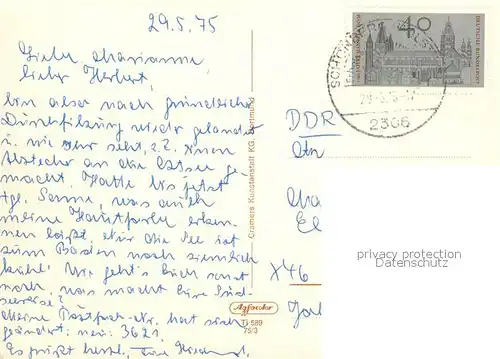 29.5.75
Liebe Marianne,
lieber Herbert,
bin aber nach gründlicher
Durchfilzung wieder gelandet
u. wie Ihr seht, z. Z. einen
Abstecher an die Ostsee ge-
macht. Hatte bis jetzt
tgl. Sonne, was auch
meine Hautfarbe erken-
nen läßt. Nur die See ist
zum Baden noch ziemlich
kühl! Wie geht's Euch sonst
noch, was macht Eure Süd-
reise?
Meine Postfach-Nr. hat sich
geändert: neu: 3621.
Es grüßt herzl. Eure
Cramers Kunstanstalt KG, Dortmund
Agfacolor
Ti 589
75/3
40
DEUTSCHE BUNDESPOST
2306
DDR
X46
privacy protection
Datenschutz